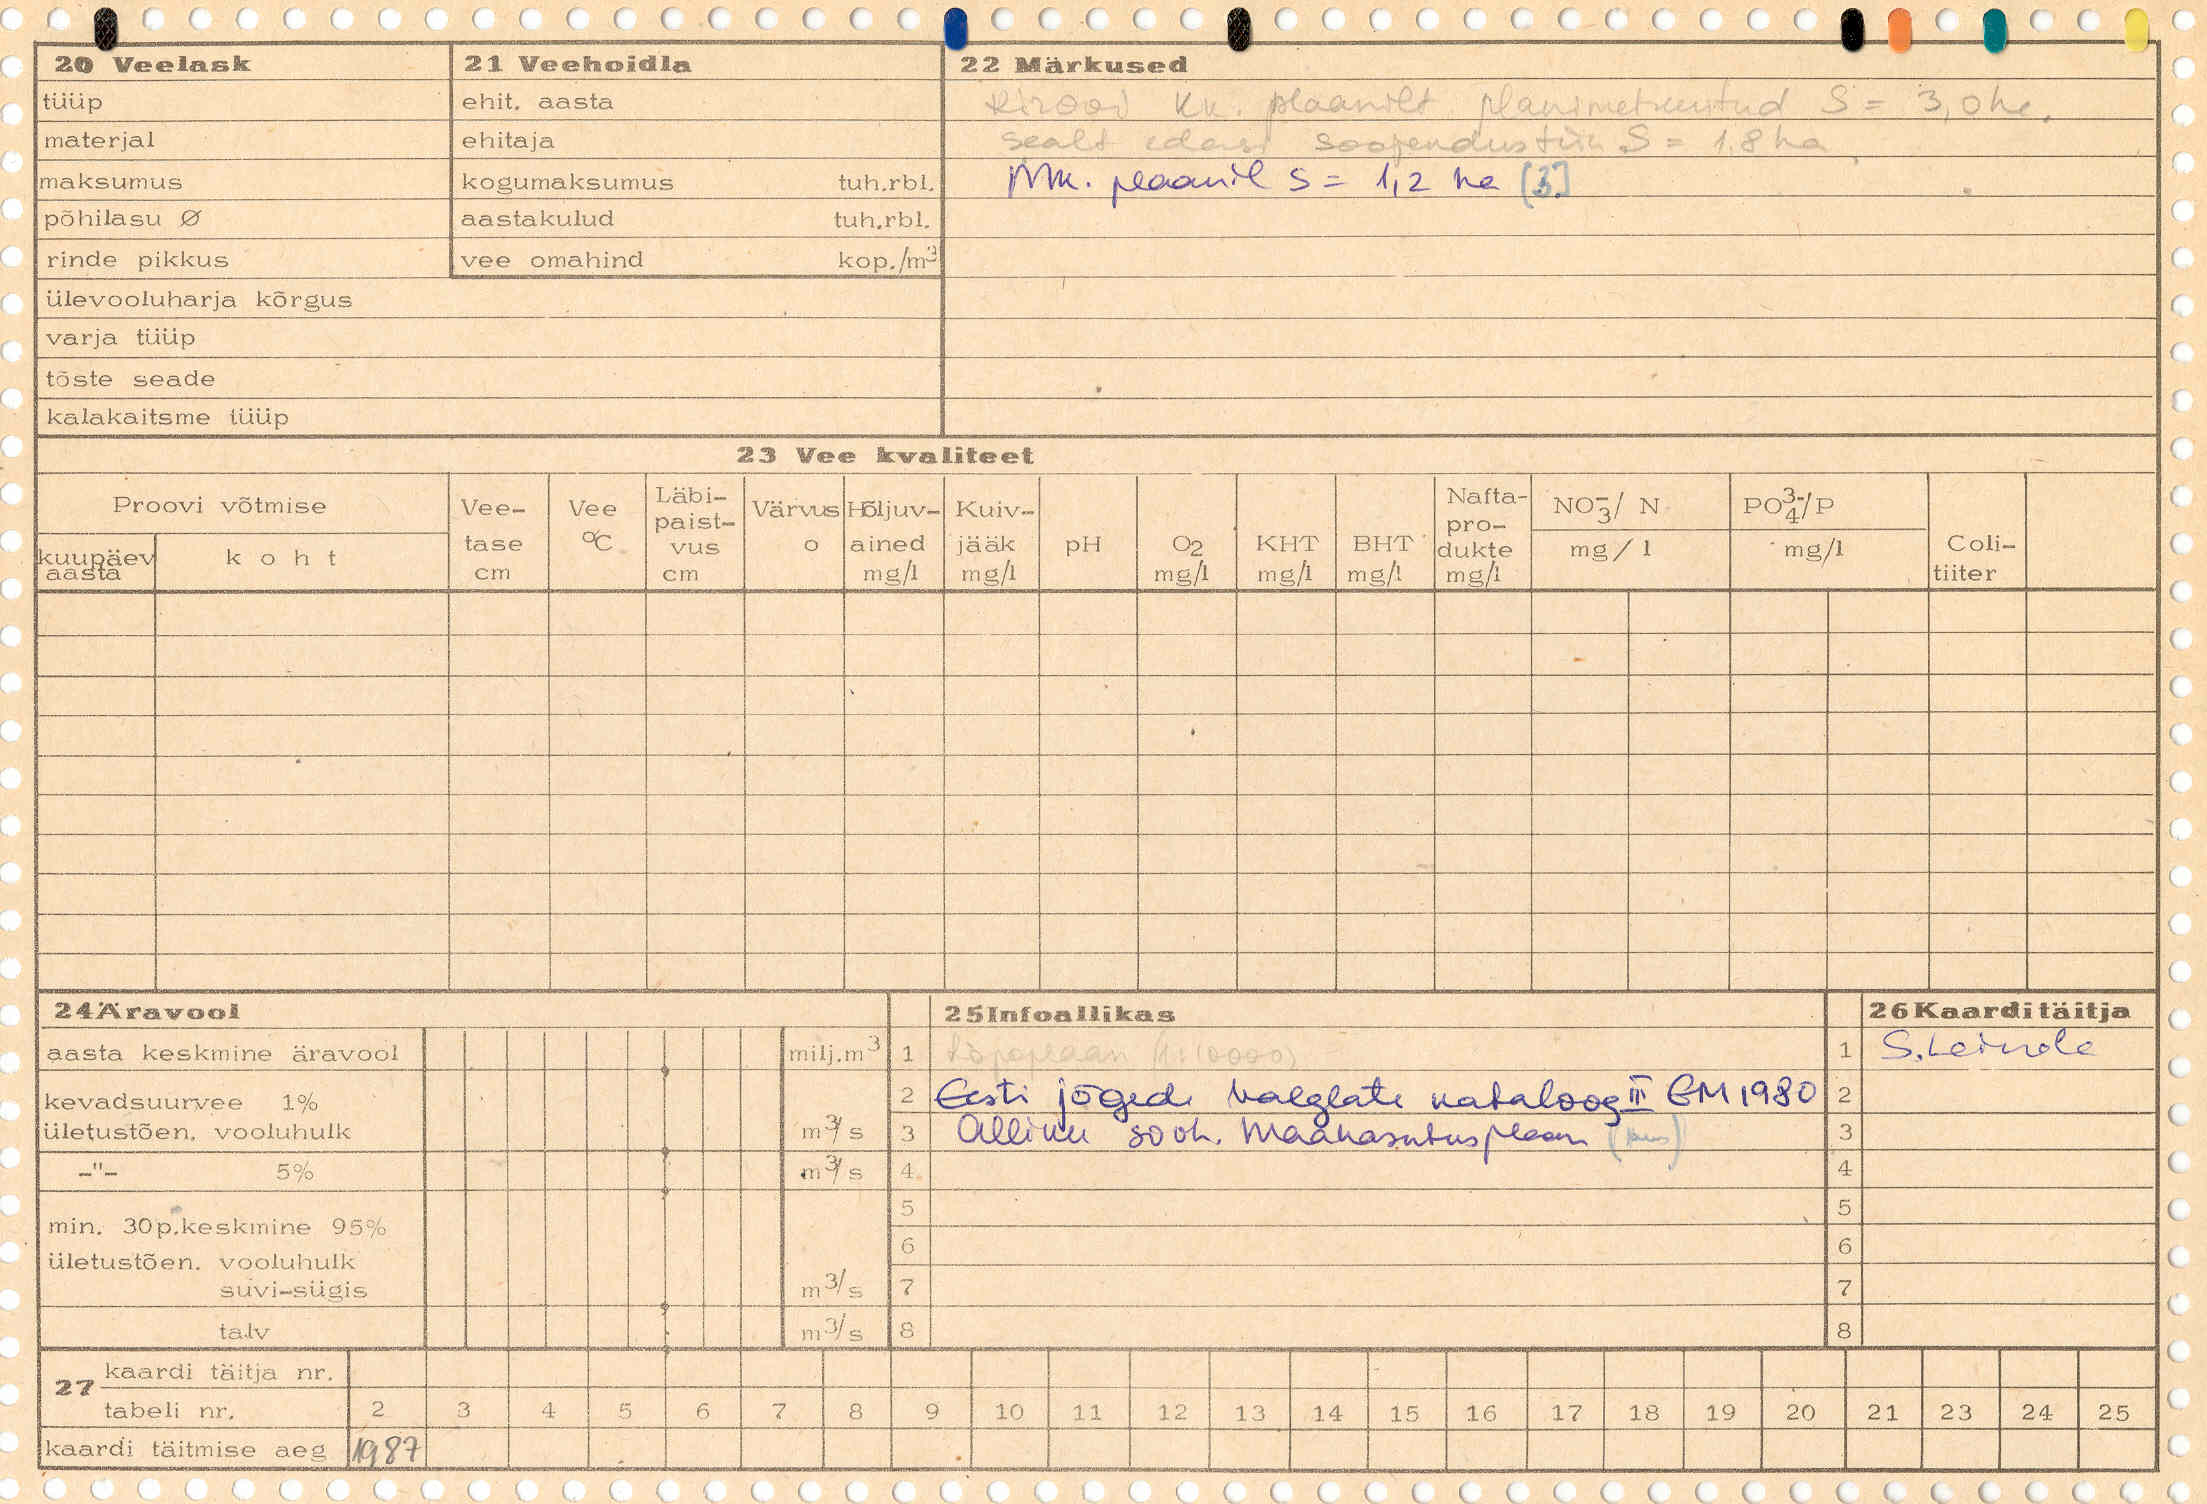 20 Veelask
tüüp
materjal
maksumus
põhilasu Ø
rinde pikkus
ülevooluharja kõrgus
varja tüüp
tõste seade
kalakaitsme tüüp
21 Veehoidla
ehit. aasta
ehitaja
kogumaksumus tuh.rbl.
aastakulud tuh.rbl.
vee omahind kop./m³
22 Märkused
kk. plaanilt planimetreeritud S = 3,0 ha.
sealt edasi soojendustiik S = 1.8 ha
Mk. plaanil S = 1,2 ha [3]
23 Vee kvaliteet
Proovi võtmise
kuupäev aasta
koht
Vee-tase cm
Vee °C
Läbi-paist-vus cm
Värvus o
Hõljuv-ained mg/l
Kuiv-jääk mg/l
pH
O2 mg/l
KHT mg/l
BHT mg/l
Nafta-pro-dukte mg/l
NO3-/ N mg/l
PO4 3-/P mg/l
Coli-tiiter
24 Äravool
aasta keskmine äravool milj.m³
kevadsuurvee 1%
ületustõen. vooluhulk m³/s
-"- 5% m³/s
min. 30p.keskmine 95%
ületustõen. vooluhulk
suvi-sügis m³/s
talv m³/s
25 Infoallikas
1 Topoplaan (1:10000)
2 Eesti jõgede valglate kataloog III EM 1980
3 Alliku sovh. Maakasutusplaan
4
5
6
7
8
26 Kaarditäitja
1 S. Leinde
2
3
4
5
6
7
8
27
kaardi täitja nr.
tabeli nr. 2 3 4 5 6 7 8 9 10 11 12 13 14 15 16 17 18 19 20 21 23 24 25
kaardi täitmise aeg 1987